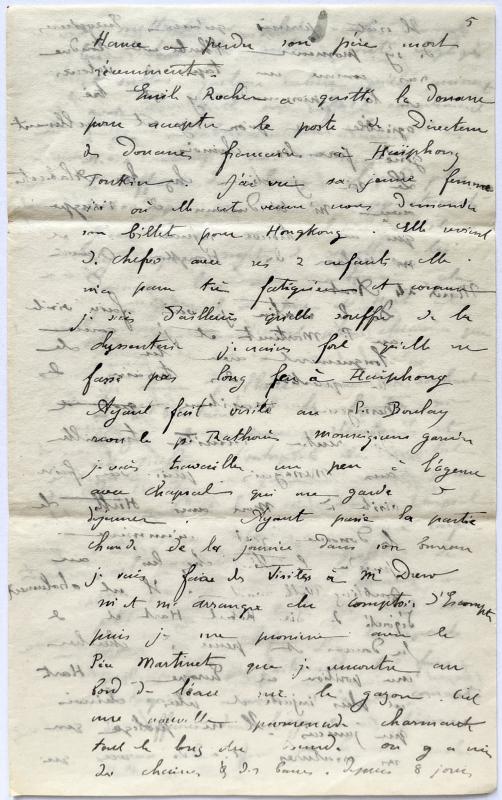 5
Hance a perdu son père mort
récemment.
Emile Rocher a quitté la Douane
pour accepter le poste de Directeur
des Douanes françaises à Haiphong
Tonkin. J'ai vu sa jeune femme
ici où elle est venue nous demander
un billet pour Hongkong. Elle revient
de chefoo avec ses 2 enfants elle
m'a paru très fatiguée et comme
je sais d'ailleurs qu'elle souffre de la
dyssenterie je crains fort qu'elle ne
fasse pas long feu à Haiphong
Ayant fait visite au P. Boulay
le p. Rathouis Monseigneur garnier
je vais travailler un peu à l'agence
avec chapsal qui me garde à
déjeuner. Ayant passé la partie
chaude de la journée dans son bureau
je vais faire des visites à Mr Drew
du comptoir d'Escompte
puis je me promène avec le
Père Martinet que je rencontre au
bord de l'eau sur le gazon. C'est
une nouvelle promenade charmante
tout le long du on y a mis
des chaises & des bancs. depuis 8 jours